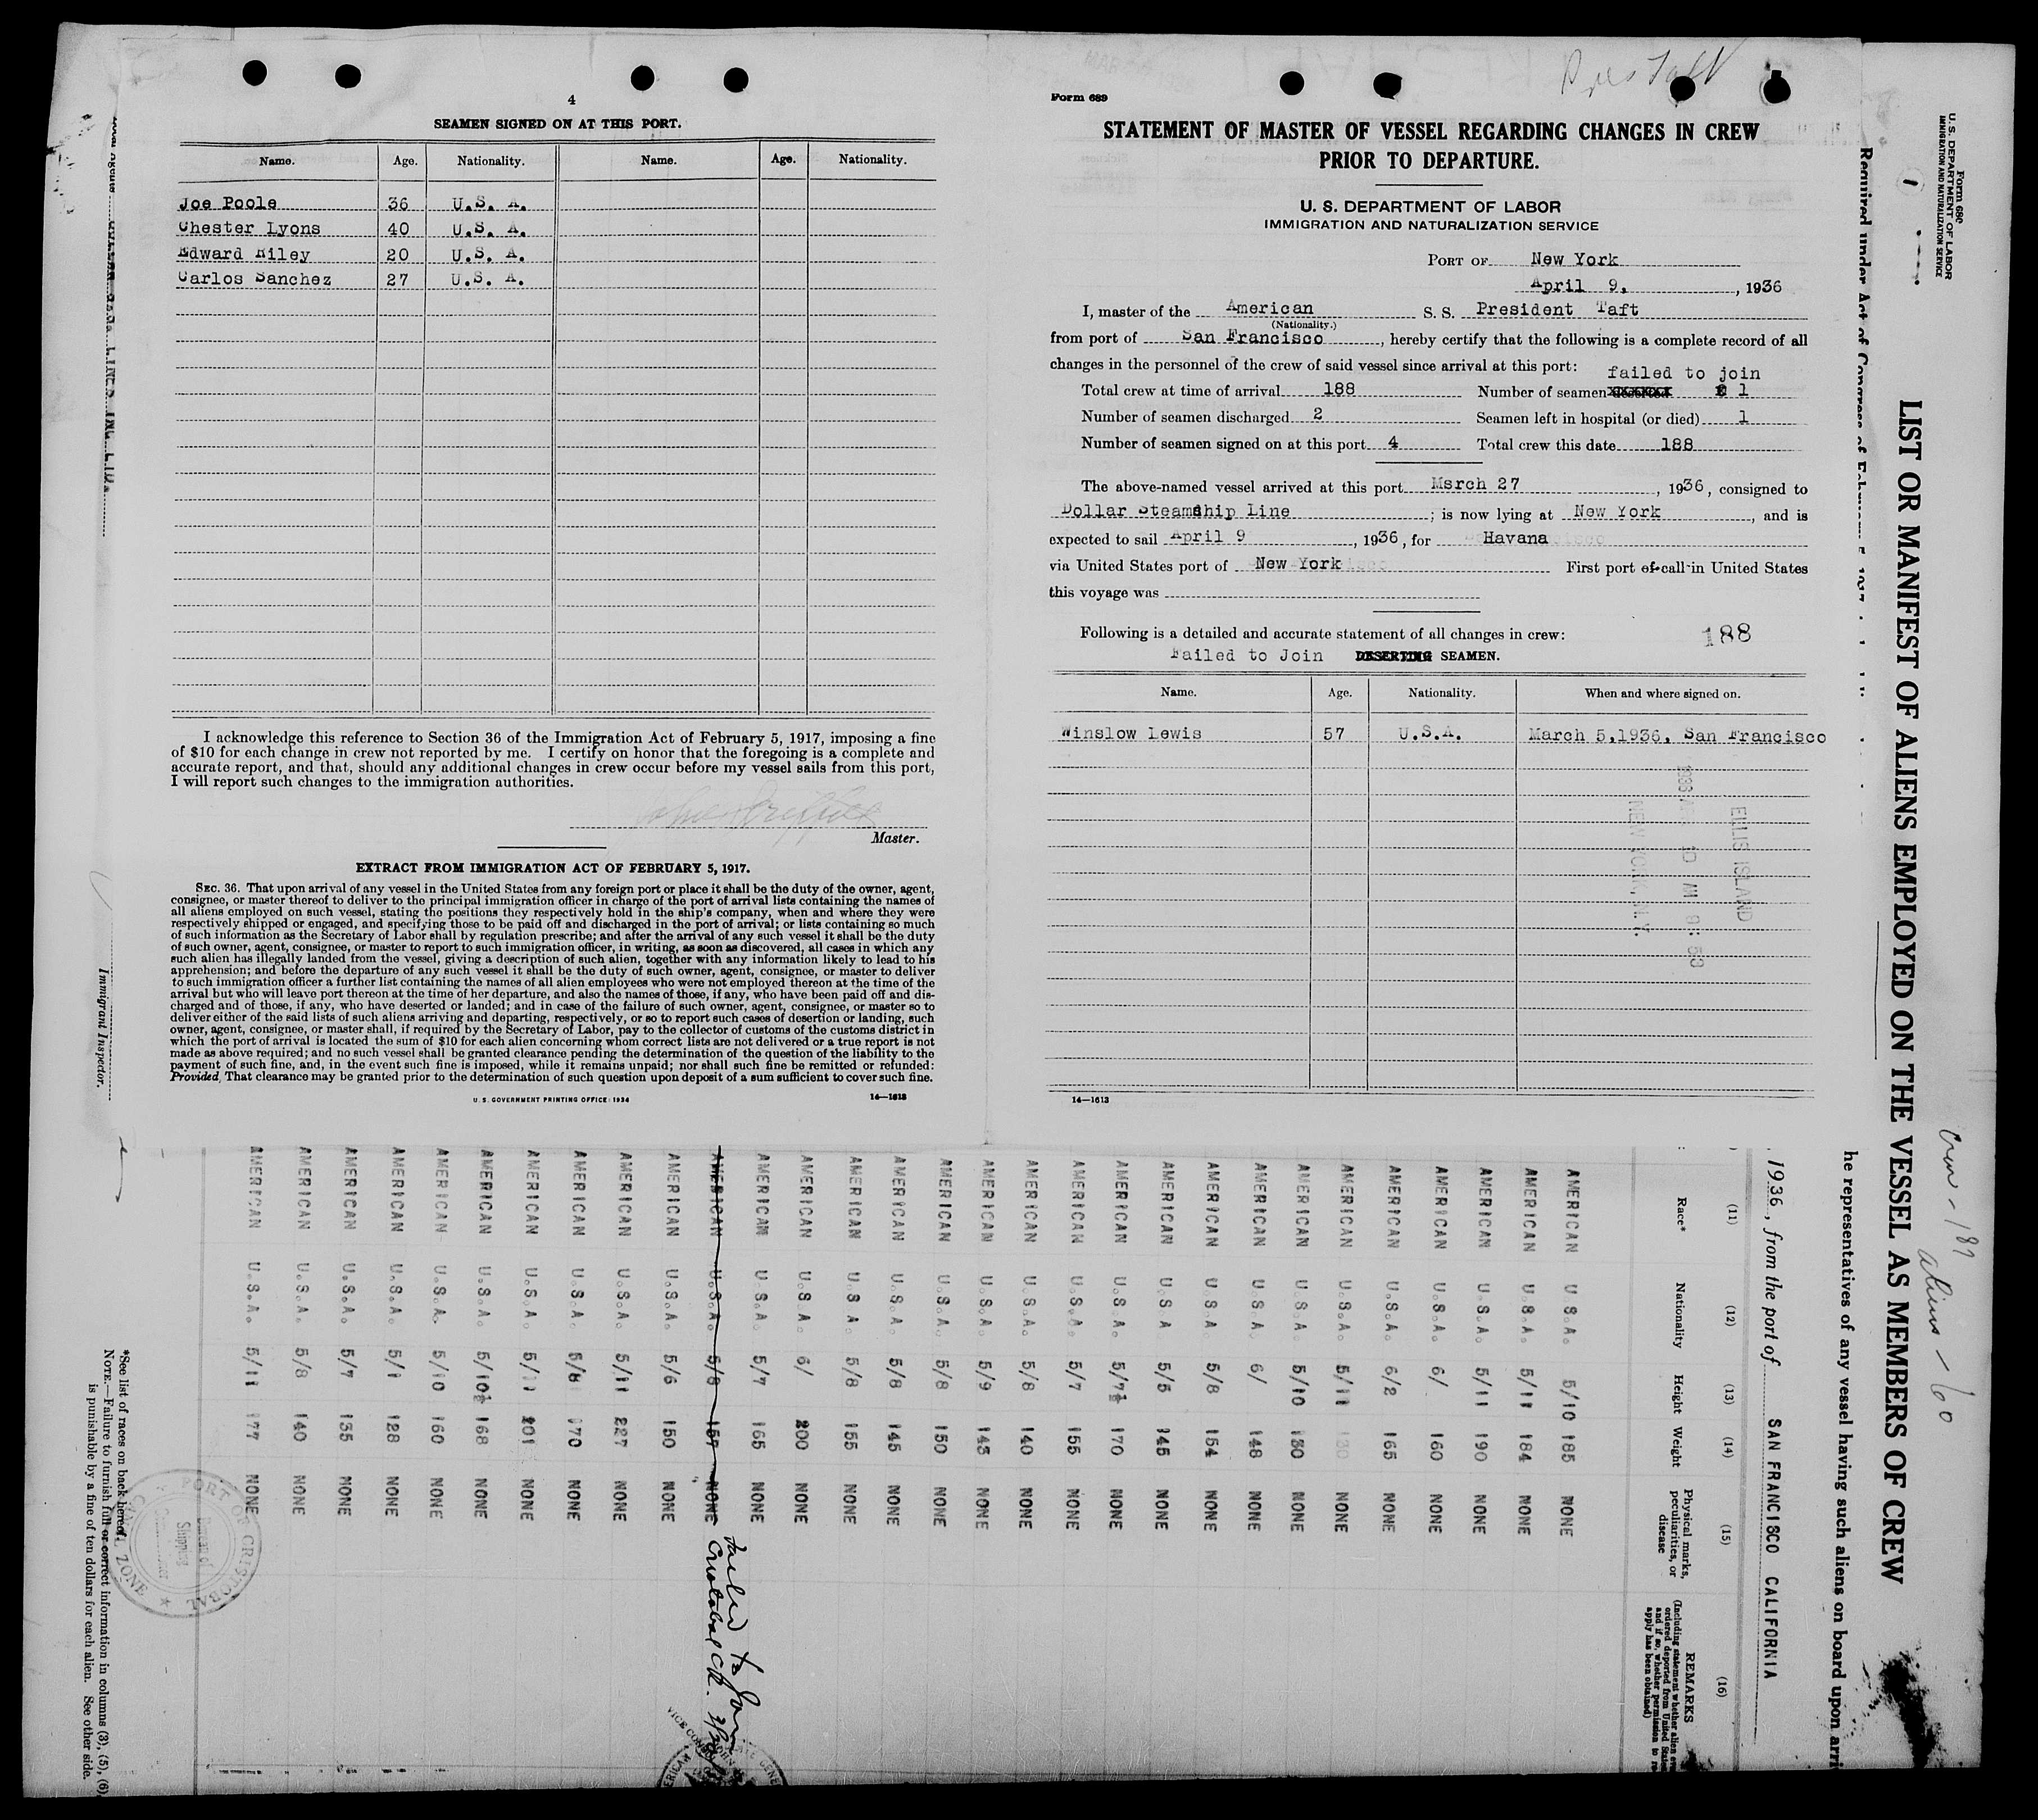 4
SEAMEN SIGNED ON AT THIS PORT.
Name. Age. Nationality. Name. Age. Nationality.
Joe Poole 36 U.S. A.
Chester Lyons 40 U.S. A.
Edward Riley 20 U.S. A.
Carlos Sanchez 27 U.S. A.
I acknowledge this reference to Section 36 of the Immigration Act of February 5, 1917, imposing a fine
of $10 for each change in crew not reported by me. I certify on honor that the foregoing is a complete and
accurate report, and that, should any additional changes in crew occur before my vessel sails from this port,
I will report such changes to the immigration authorities.
Master.
EXTRACT FROM IMMIGRATION ACT OF FEBRUARY 5, 1917.
SEC. 36. That upon arrival of any vessel in the United States from any foreign port or place it shall be the duty of the owner, agent,
consignee, or master thereof to deliver to the principal immigration officer in charge of the port of arrival lists containing the names of
all aliens employed on such vessel, stating the positions they respectively hold in the ship's company, when and where they were
respectively shipped or engaged, and specifying those to be paid off and discharged in the port of arrival; or lists containing so much
of such information as the Secretary of Labor shall by regulation prescribe; and after the arrival of any such vessel it shall be the duty
of such owner, agent, consignee, or master to report to such immigration officer, in writing, as soon as discovered, all cases in which any
such alien has illegally landed from the vessel, giving a description of such alien, together with any information likely to lead to his
apprehension; and before the departure of any such vessel it shall be the duty of such owner, agent, consignee, or master to deliver
to such immigration officer a further list containing the names of all alien employees who were not employed thereon at the time of the
arrival but who will leave port thereon at the time of her departure, and also the names of those, if any, who have been paid off and dis-
charged and of those, if any, who have deserted or landed; and in case of the failure of such owner, agent, consignee, or master so to
deliver either of the said lists of such aliens arriving and departing, respectively, or so to report such cases of desertion or landing, such
owner, agent, consignee, or master shall, if required by the Secretary of Labor, pay to the collector of customs of the customs district in
which the port of arrival is located the sum of $10 for each alien concerning whom correct lists are not delivered or a true report is not
made as above required; and no such vessel shall be granted clearance pending the determination of the question of the liability to the
payment of such fine, and, in the event such fine is imposed, while it remains unpaid; nor shall such fine be remitted or refunded:
Provided, That clearance may be granted prior to the determination of such question upon deposit of a sum sufficient to cover such fine.
U.S. GOVERNMENT PRINTING OFFICE: 1934 14—1613
Pres Taft
Form 689
STATEMENT OF MASTER OF VESSEL REGARDING CHANGES IN CREW
PRIOR TO DEPARTURE.
U. S. DEPARTMENT OF LABOR
IMMIGRATION AND NATURALIZATION SERVICE
PORT OF New York
April 9, , 1936
I, master of the American S. S. President Taft
(Nationality.)
from port of San Francisco , hereby certify that the following is a complete record of all
changes in the personnel of the crew of said vessel since arrival at this port:
failed to join
Total crew at time of arrival 188 Number of seamen deserted 1
Number of seamen discharged 2 Seamen left in hospital (or died) 1
Number of seamen signed on at this port 4 Total crew this date 188
The above-named vessel arrived at this port March 27 , 1936, consigned to
Dollar Steamship Line ; is now lying at New York , and is
expected to sail April 9 , 1936, for Havana
via United States port of New York First port of call in United States
this voyage was
Following is a detailed and accurate statement of all changes in crew: 188
Failed to Join DESERTING SEAMEN.
Name. Age. Nationality. When and where signed on.
Winslow Lewis 57 U.S.A. March 5,1936, San Francisco
ELLIS ISLAND
NEW YORK, N.Y.
14—1613
Form 680
U. S. DEPARTMENT OF LABOR
IMMIGRATION AND NATURALIZATION SERVICE
1
LIST OR MANIFEST OF ALIENS EMPLOYED ON THE VESSEL AS MEMBERS OF CREW
Crew - 189
Aliens - 60
Required under Act of Congress of
he representatives of any vessel having such aliens on board upon arri
1936, from the port of SAN FRANCISCO CALIFORNIA
(11) (12) (13) (14) (15) (16)
Race* Nationality Height Weight Physical marks, peculiarities, or disease REMARKS
AMERICAN U.S.A. 5/10 185 NONE
AMERICAN U.S.A. 5/11 184 NONE
AMERICAN U.S.A. 5/11 190 NONE
AMERICAN U.S.A. 6/ 160 NONE
AMERICAN U.S.A. 6/2 165 NONE
AMERICAN U.S.A. 5/11 130 NONE
AMERICAN U.S.A. 5/10 130 NONE
AMERICAN U.S.A. 6/ 148 NONE
AMERICAN U.S.A. 5/8 154 NONE
AMERICAN U.S.A 5/5 145 NONE
AMERICAN U.S.A. 5/7½ 170 NONE
AMERICAN U.S.A. 5/7 155 NONE
AMERICAN U.S.A. 5/8 140 NONE
AMERICAN U.S.A. 5/9 143 NONE
AMERICAN U.S.A. 5/8 150 NONE
AMERICAN U.S.A. 5/8 145 NONE
AMERICAN U.S A. 5/8 155 NONE
AMERICAN U.S.A. 6/ 200 NONE
AMERICAN U.S.A. 5/7 165 NONE
AMERICAN U.S.A. 5/8 157 NONE Failed to Join Cristobal
AMERICAN U.S.A. 5/6 150 NONE
AMERICAN U.S.A. 5/11 227 NONE
AMERICAN U.S.A. 5/8 170 NONE
AMERICAN U.S.A. 5/11 201 NONE
AMERICAN U.S.A. 5/10½ 168 NONE
AMERICAN U.S.A. 5/10 160 NONE
AMERICAN U.S.A. 5/1 128 NONE
AMERICAN U.S.A. 5/7 135 NONE
AMERICAN U.S.A. 5/8 140 NONE
AMERICAN U.S.A. 5/11 177 NONE
PORT OF CRISTOBAL
Bureau of
Shipping
*See list of races on back hereof.
NOTE.—Failure to furnish full or correct information in columns (3), (5), (6),
is punishable by a fine of ten dollars for each alien. See other side.
Immigrant Inspector.